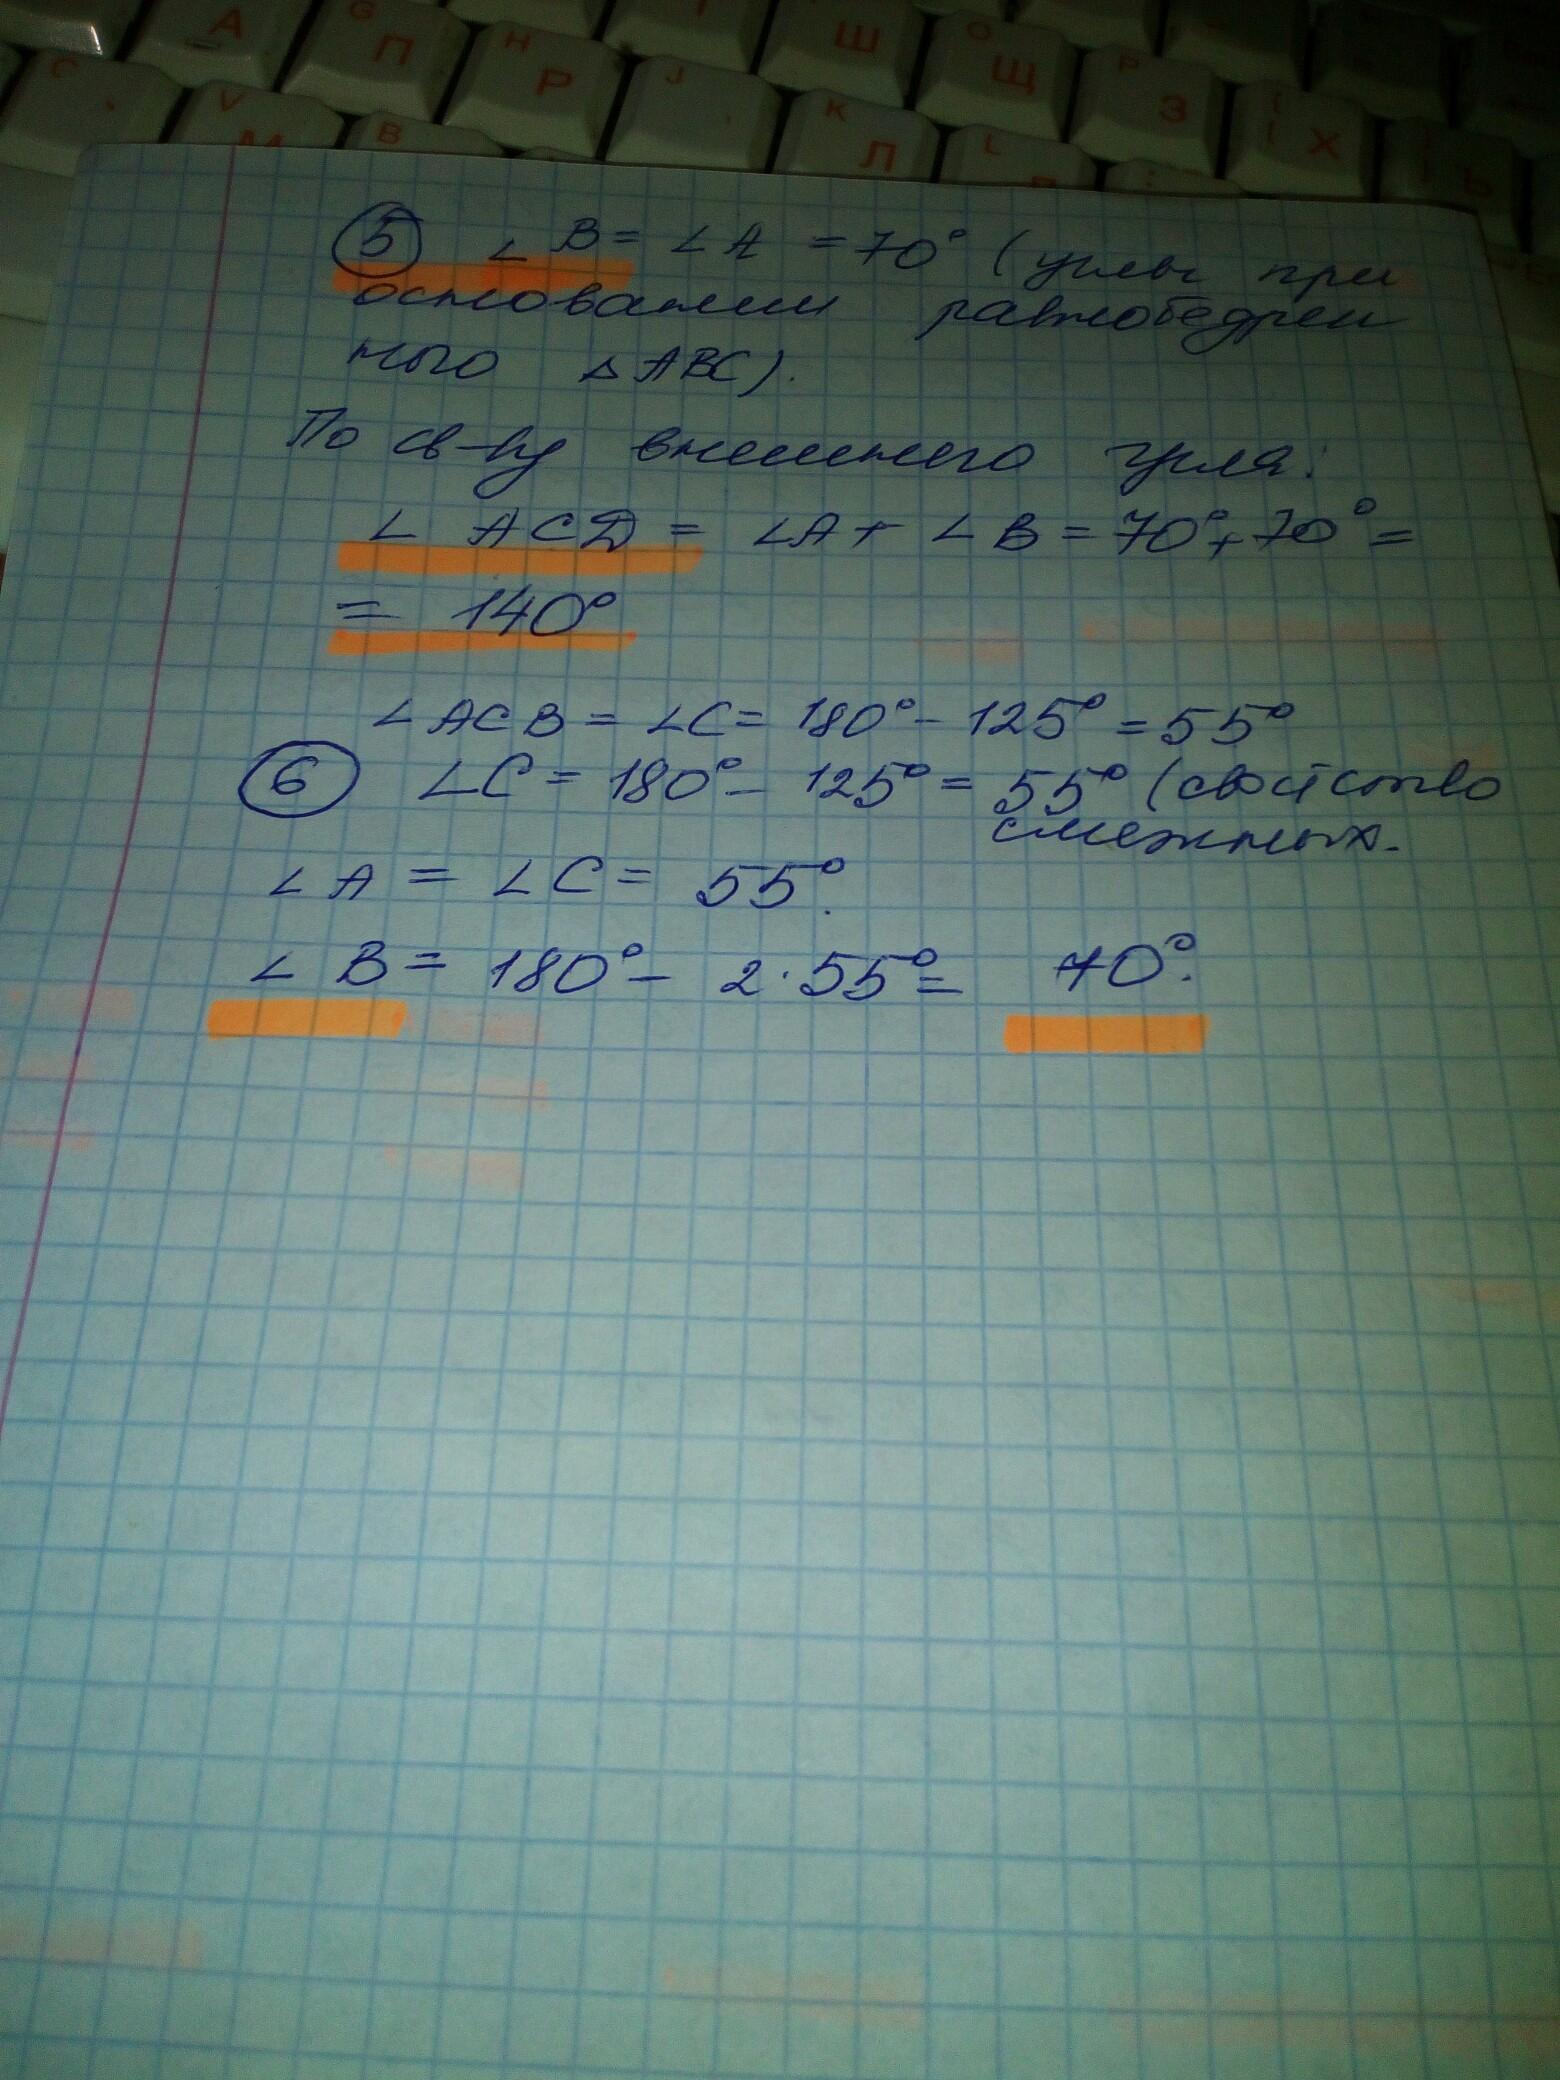 А G П Н Р J Ш О Щ Р З { [ Х Ъ
С V М В К Л L
5 ∠ B = ∠ A = 70° ( углы при
основании равнобедрен
ного △ ABC).
По св-ву внешнего угла:
∠ ACD = ∠A + ∠ B = 70° + 70° =
= 140°
∠ ACB = ∠C = 180° - 125° = 55°
6 ∠C = 180° - 125° = 55° (свойство
смежных.
∠ A = ∠ C = 55°.
∠ B = 180° - 2·55° = 70°.